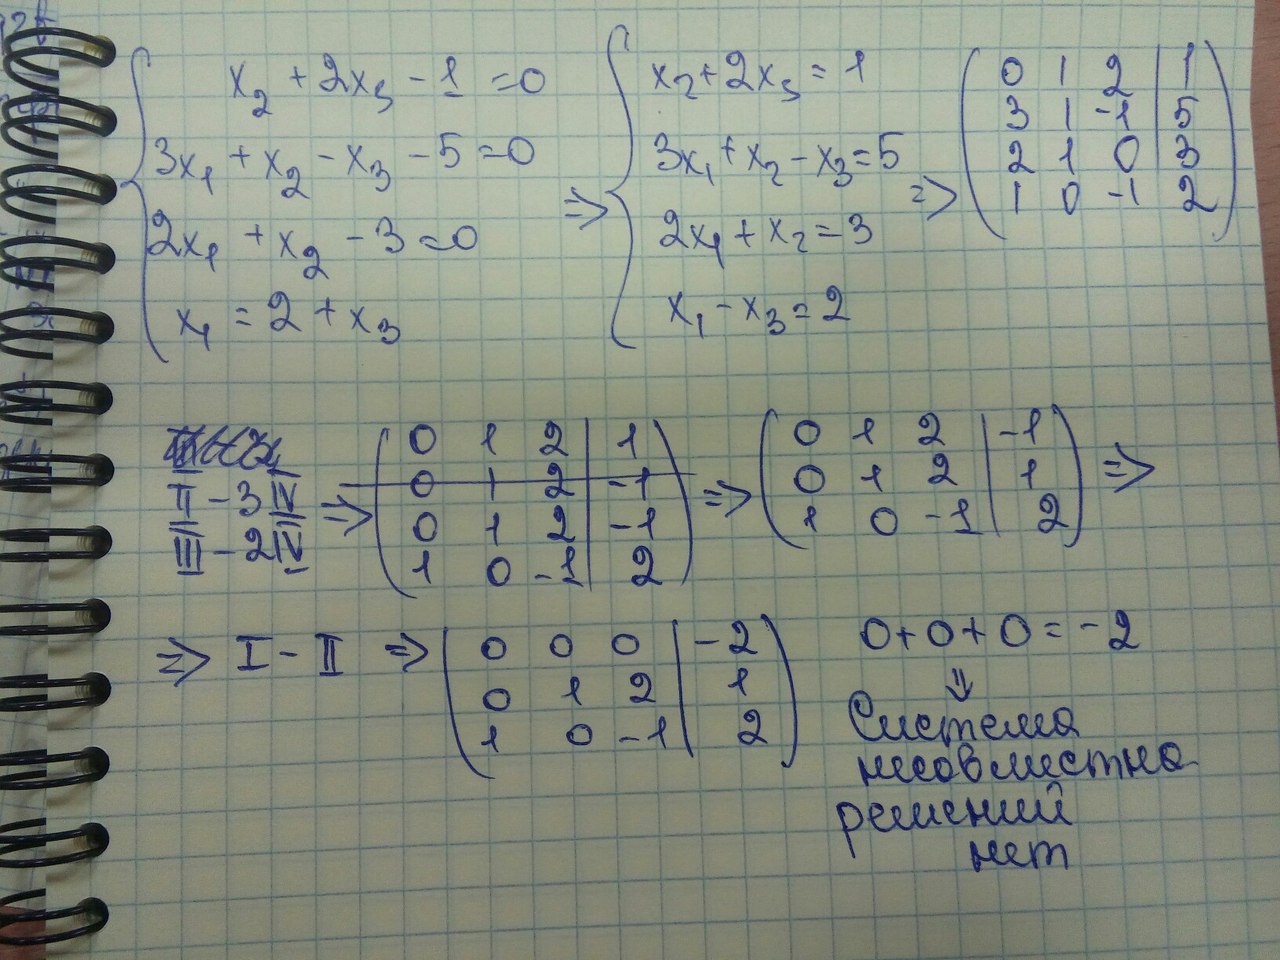 x₂ + 2x₃ - 1 = 0
3x₁ + x₂ - x₃ - 5 = 0
2x₁ + x₂ - 3 = 0
x₁ = 2 + x₃
⇒
x₂ + 2x₃ = 1
3x₁ + x₂ - x₃ = 5
2x₁ + x₂ = 3
x₁ - x₃ = 2
⇒
0 1 2 | 1
3 1 -1 | 5
2 1 0 | 3
1 0 -1 | 2
II - 3IV
III - 2IV
⇒
0 1 2 | 1
0 1 2 | -1
0 1 2 | -1
1 0 -1 | 2
⇒
0 1 2 | -1
0 1 2 | 1
1 0 -1 | 2
⇒
⇒ I - II ⇒
0 0 0 | -2
0 1 2 | 1
1 0 -1 | 2
0 + 0 + 0 = -2
⇓
Система
несовместна
решений
нет